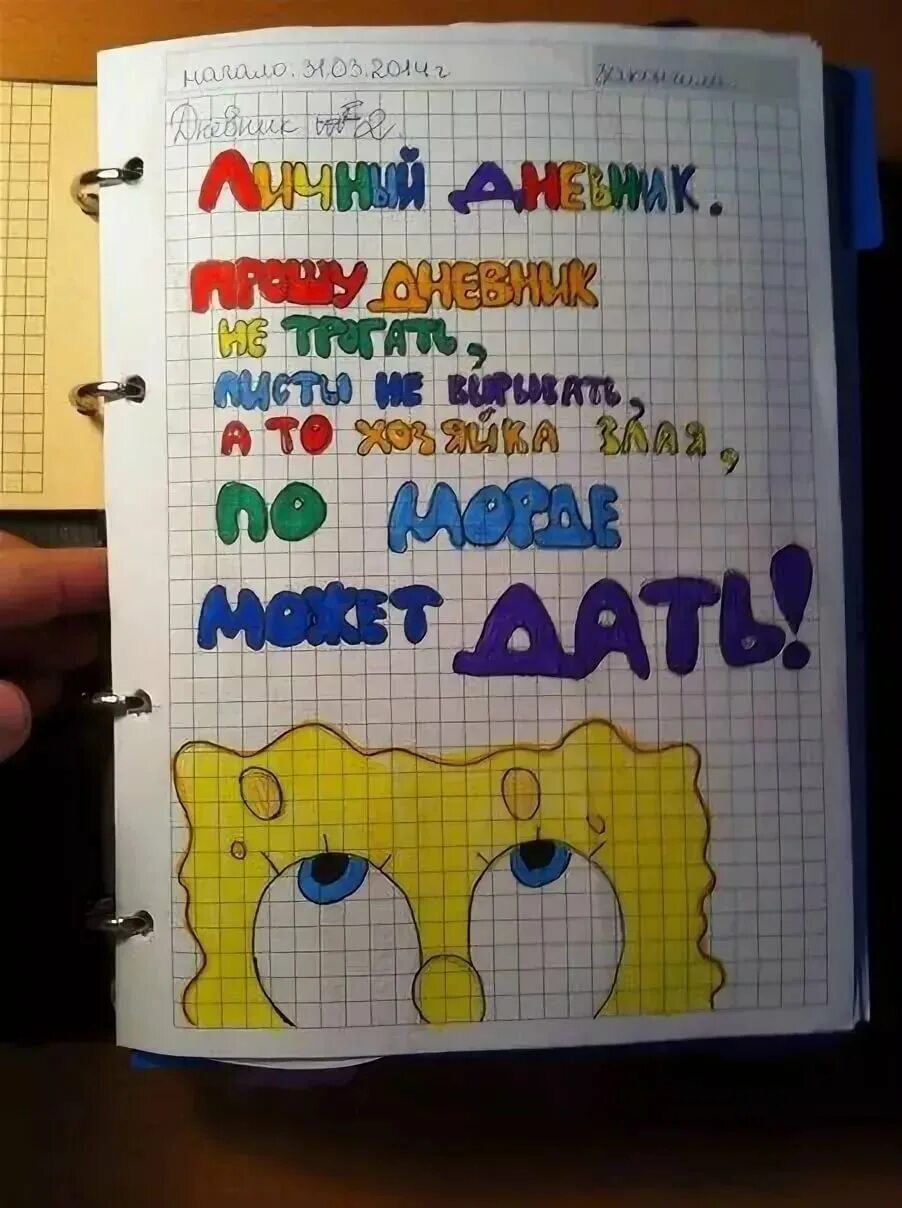 начало. 31.03.2014г
Дневник №2.
Личный дневник.
Прошу дневник
не трогать,
листы не вырывать,
а то хозяйка злая,
по морде
может дать!